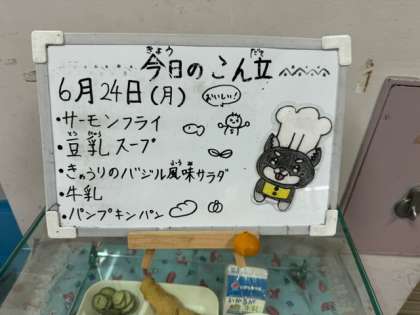 今日のこん立
6月24日(月)
おいしい!
・サーモンフライ
・豆乳スープ
・きゅうりのバジル風味サラダ
・牛乳
・パンプキンパン